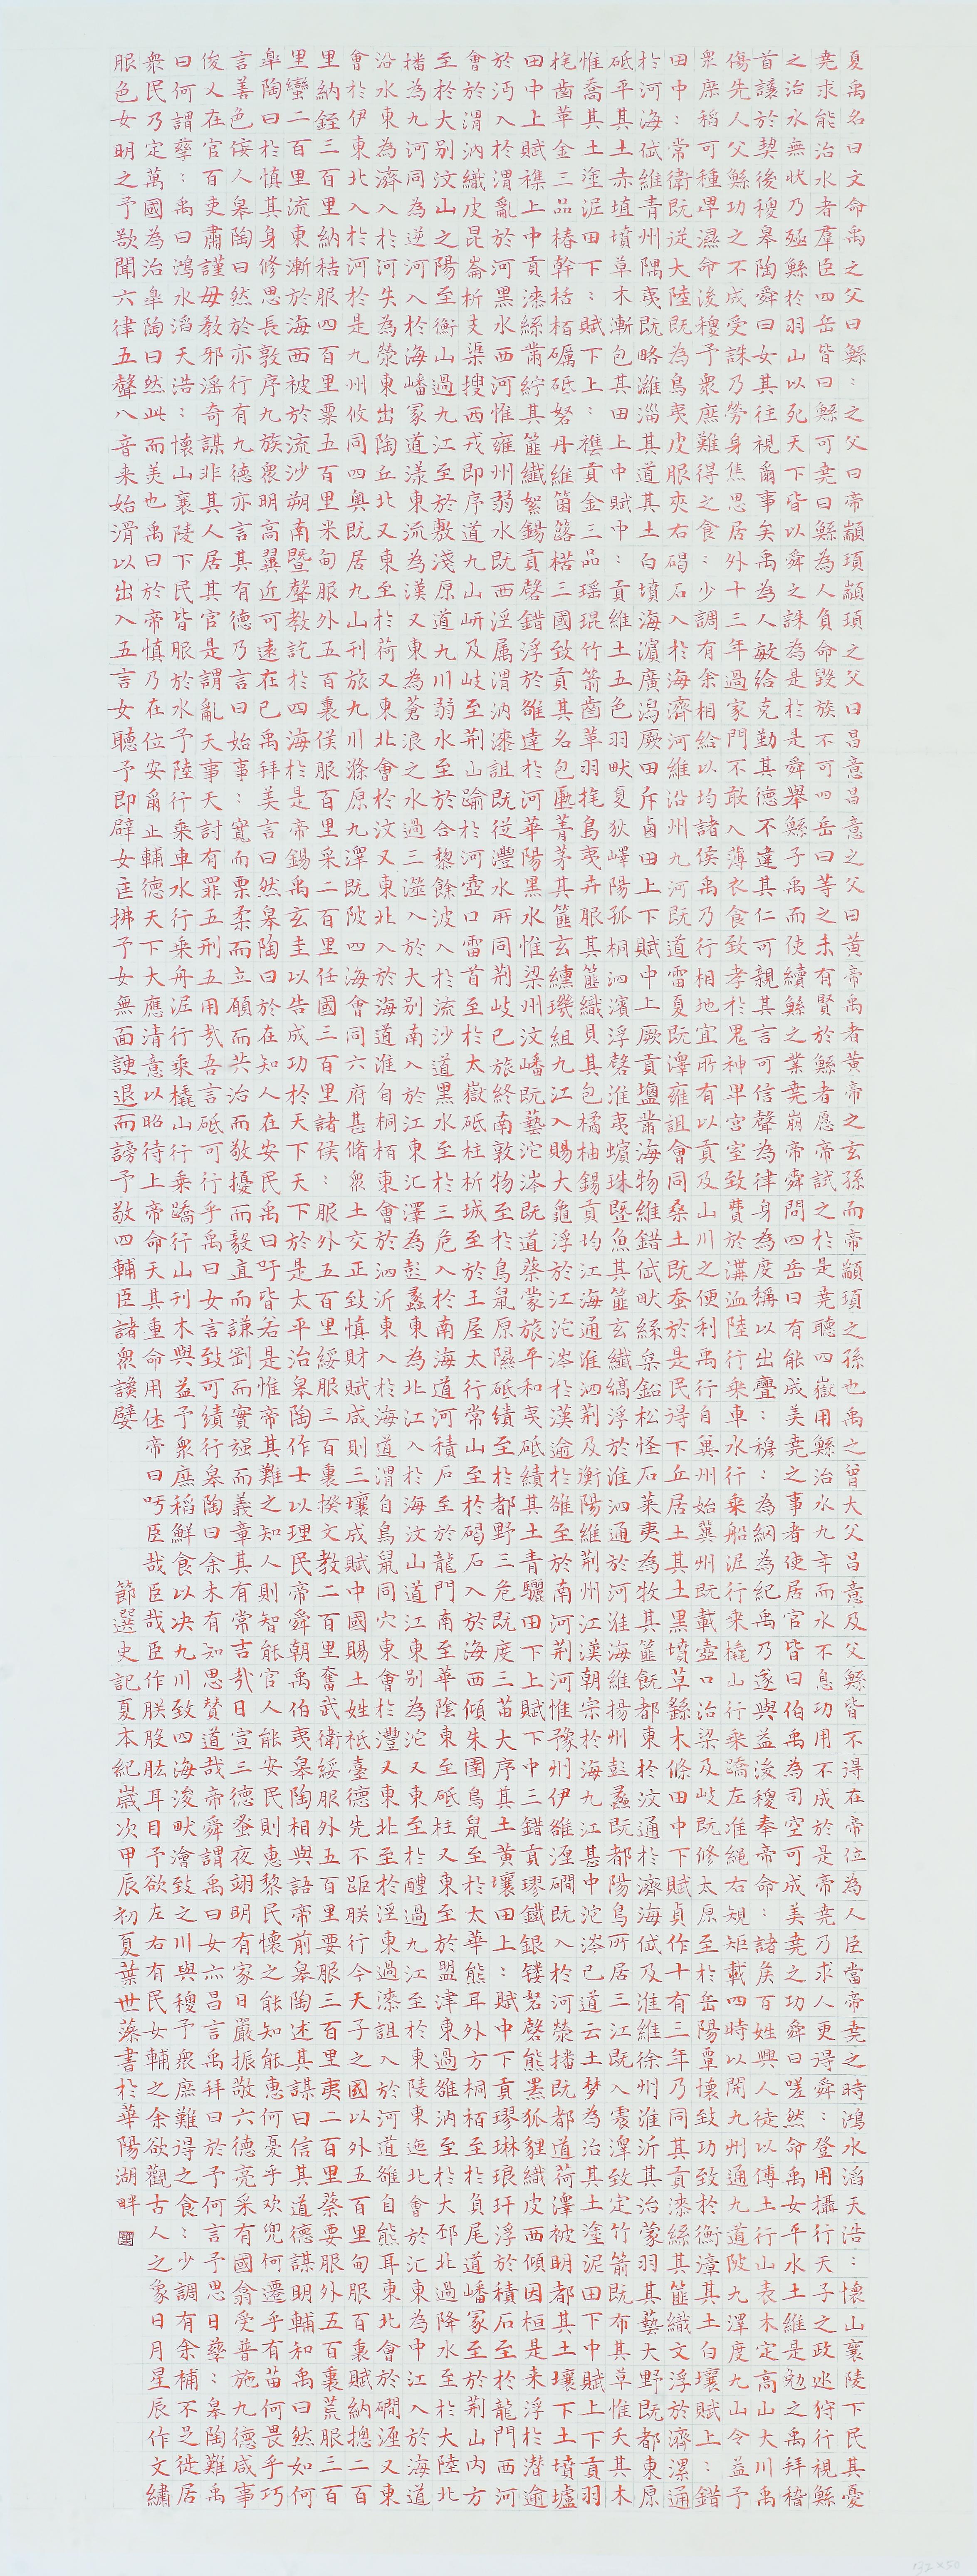 夏禹名曰文命禹之父曰鯀：之父曰帝顓頊顓頊之父曰昌意昌意之父曰黃帝禹者黃帝之玄孫而帝顓頊之孫也禹之曾大父昌意及父鯀皆不得在帝位為人臣當帝堯之時鴻水滔天浩：懷山襄陵下民其憂
堯求能治水者羣臣四岳皆曰鯀可堯曰鯀為人負命毀族不可四岳曰等之未有賢於鯀者愿帝試之於是堯聽四嶽用鯀治水九年而水不息功用不成於是帝堯乃求人更得舜：登用攝行天子之政巡狩行視鯀
之治水無狀乃殛鯀於羽山以死天下皆以舜之誅為是於是舜舉鯀子禹而使續鯀之業堯崩帝舜問四岳曰有能成美堯之事者使居官皆曰伯禹為司空可成美堯之功舜曰嗟然命禹女平水土維是勉之禹拜稽
首讓於契後稷皋陶舜曰女其往視爾事矣禹為人敏給克勤其德不違其仁可親其言可信聲為律身為度稱以出亹：穆：為綱為紀禹乃遂與益浚稷奉帝命：諸侯百姓興人徒以傅土行山表木定高山大川禹
傷先人父鯀功之不成受誅乃勞身焦思居外十三年過家門不敢入薄衣食致孝於鬼神卑宮室致費於溝淢陸行乘車水行乘船泥行乘橇山行乘蹻左准繩右規矩載四時以開九州通九道陂九澤度九山令益予
衆庶稻可種卑濕命浚稷予衆庶難得之食：少調有余相給以均諸侯禹乃行相地宜所有以貢及山川之便利禹行自冀州始冀州既載壺口治梁及岐既修太原至於岳陽覃懷致功致於衡漳其土白壤賦上：錯
田中：常衛既從大陸既為鳥夷皮服夾右碣石入於海濟河維沿州九河既道雷夏既澤雍沮會同桑土既蚕於是民得下丘居土其土黑墳草繇木條田中下賦貞作十有三年乃同其貢漆絲其篚織文浮於濟漯通
於河海岱維青州隅夷既略濰淄其道其土白墳海濱廣潟厥田斥鹵田上下賦中上厥貢鹽絺海物維錯岱畎絲枲鉛松怪石萊夷為牧其篚既都東於汶通於濟海岱及淮維徐州淮沂其治蒙羽其藝大野既都東原
砥平其土赤埴墳草木漸包其田上中賦中：貢維土五色羽畎夏狄嶧陽孤桐泗濱浮磬淮夷蠙珠暨魚其篚玄纖縞浮於淮泗通於河淮海維揚州彭蠡既都陽鳥所居三江既入震澤致定竹箭既布其草惟夭其木
惟喬其土塗泥田下：賦下上：襍貢金三品瑶琨竹箭齒革羽旄島夷卉服其篚織貝其包橘柚錫貢均江海通淮泗荊及衡陽維荊州江漢朝宗於海九江甚中沱涔已道云土梦為治其土塗泥田下中賦上下貢羽
旄齒革金三品椿幹栝栢礪砥砮丹維箘簬楛三國致貢其名包匭菁茅其篚玄纁璣組九江入賜大龜浮於江沱涔於漢逾於雒至於南河荊河惟豫州伊雒瀍澗既入於河滎播既都道荷澤被明都其土壤下土墳壚
田中上賦襍上中貢漆絲絺紵其篚纖絮錫貢磬錯浮於雒達於河華陽黑水惟梁州汶嶓既藝沱涔既道蔡蒙旅平和夷砥績其土青驪田下上賦下中三錯貢璆鐵銀鏤砮磬熊羆狐貍織皮西傾因桓是来浮於潛逾
於沔入於渭亂於河黑水西河惟雍州弱水既西涇属渭汭漆沮既從灃水所同荊岐已旅終南敦物至於鳥鼠原隰砥績至於都野三危既度三苗大序其土黃壤田上：賦中下貢璆琳琅玕浮於積石至於龍門西河
會於渭汭織皮昆崙析支渠搜西戎即序道九山岍及岐至荊山踰於河壺口雷首至於太嶽砥柱析城至於王屋太行常山至於碣石入於海西傾朱圉鳥鼠至於太華熊耳外方桐栢至於負尾道嶓冢至於荊山内方
至於大别汶山之陽至衡山過九江至於敷淺原道九川弱水至於合黎餘波入於流沙道黑水至於三危入於南海道河積石至於龍門南至華陰東至砥柱又東至於盟津東過雒汭至於大邳北過降水至於大陸北
播為九河同為逆河入於海嶓冢道漾東流為漢又東為蒼浪之水過三澨入於大别南入於江東汇澤為彭蠡東為北江入於海汶山道江東别為沱又東至於醴過九江至於東陵東迤北會於汇東為中江入於海道
沿水東為濟入於河失為滎東出陶丘北又東至於荷又東北會於汶又東北入於海道淮自桐栢東會於泗沂東入於海道渭自鳥鼠同穴東會於灃又東北至於涇東過漆沮入於河道雒自熊耳東北會於澗瀍又東
會於伊東北入於河於是九州攸同四奥既居九山刊旅九川滌原九澤既陂四海會同六府甚脩眾土交正致慎財賦咸則三壤成賦中國賜土姓祗臺德先不距朕行今天子之國以外五百里甸服百裏賦納揔二百
里納銍三百里納秸服四百里粟五百里米甸服外五百裏侯服百里采二百里任國三百里諸侯：服外五百里綏服三百裏揆文教二百里奮武衛綏服外五百里要服三百里夷二百里蔡要服外五百裏荒服三百
里蠻二百里流東漸於海西被於流沙朔南暨聲教訖於四海於是帝錫禹玄圭以告成功於天下天下於是太平治皋陶作士以理民帝舜朝禹伯夷皋陶相與語帝前皋陶述其謀曰信其道德謀明輔和禹曰然如何
皋陶曰於慎其身修思長敦序九族衆明高翼近可遠在已禹拜美言曰然皋陶曰於在知人在安民禹曰吁皆若是惟帝其難之知人則智能官人能安民則惠黎民懷之能知能惠何憂乎欢兜何遷乎有苗何畏乎巧
言善色佞人皋陶曰然於亦行有九德亦言其有德乃言曰始事：寬而栗柔而立願而共治而敬擾而毅直而謙劉而實强而義章其有常吉哉日宣三德蚤夜翊明有家日嚴振敬六德亮采有國翕受普施九德咸事
俊乂在官百吏肅謹毋教邪淫奇謀非其人居其官是謂亂天事天討有罪五刑五用哉吾言砥可行乎禹曰女言致可績行皋陶曰余未有知思贊道哉帝舜謂禹曰女亦昌言禹拜曰於予何言予思日孳：皋陶難禹
曰何謂孳：禹曰鴻水滔天浩：懷山襄陵下民皆服於水予陸行乘車水行乘舟泥行乘橇山行乘蹻行山刊木與益予衆庶稻鮮食以决九川致四海浚畎澮致之川與稷予衆庶難得之食：少調有余補不足徙居
衆民乃定萬國為治皋陶曰然此而美也禹曰於帝慎乃在位安爾止輔德天下大應清意以昭待上帝命天其重命用休帝曰吁臣哉臣哉臣作朕股肱耳目予欲左右有民女輔之余欲觀古人之象日月星辰作文繡
服色女明之予欲聞六律五聲八音来始滑以出入五言女聽予即辟女匡拂予女無面諛退而謗予敬四輔臣諸衆讒嬖
節選史記夏本紀歲次甲辰初夏葉世藻書於華陽湖畔